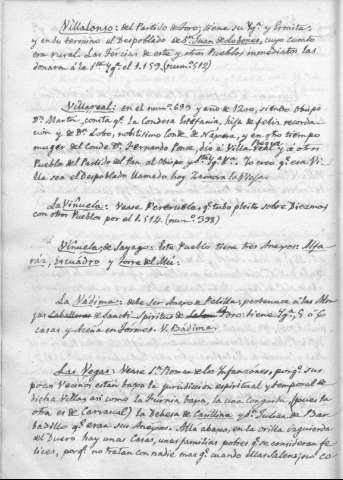 Villalonso: del Partido de Toro; tiene su Yg.ª y Ermita:
y en su termino el Despoblado de S.n Juan de los bones, cuyo curato
era rural. Las tercias de esta y otros Pueblos inmediatos las
donaron a la S.ta Yg.ª el 1.159 (num.º 512)
Villareal; en el num.º 699 y año de 1200, siendo Obispo
D.n Martin, consta q.e la Condesa Estefania, hija de feliz recorda-
cion y de D.n Lobo, nobilisimo Conde de Nayera, y en otro tiempo
muger del Conde D.n Fernando Ponce, dio a Villa Real y a otros
Pueblo del Partido del Pan al Obispo y S.ta Yg.ª Yo creo q.e era Vi-
lla sea el Despoblado llamado hoy Zamora la Vieja
La Viñuela: Vease Pereruela q.e tubo pleito sobre Diezmos
con otros Pueblos por el 1.514. (num.º 398)
Viñuela de Sayago: Este Pueblo tiene tres Anexos: Alfa-
ráz, Escuádro y Torre del Mú:
La Nádima: debe ser Anexo de Pelilla; pertenece a las Mon-
jas de Sancti Spiritus de Toro: tiene Yg.ª, 5 ó 6
casas y Aceña en Tormes. V. Bádima.
Las Vegas: Vease S.n Roman de los Ynfanzones, porq.e sus
pocos Vecinos estan bajo la jurisdicion espiritual y temporal de
dicha Villa, asi como la Dueña baja, la una conquista (pues la
otra es de Carrascal) la Dehesa de Casillina y S.n Julian de Bar-
badillo q.e eran sus Anexos. Alla abajo, en la orilla izquierda
del Duero hay unas Casas, unas familias pobres q.e se consideran fe-
lices, porq.e no tratan con nadie mas q.e cuando ellas salen, no co-